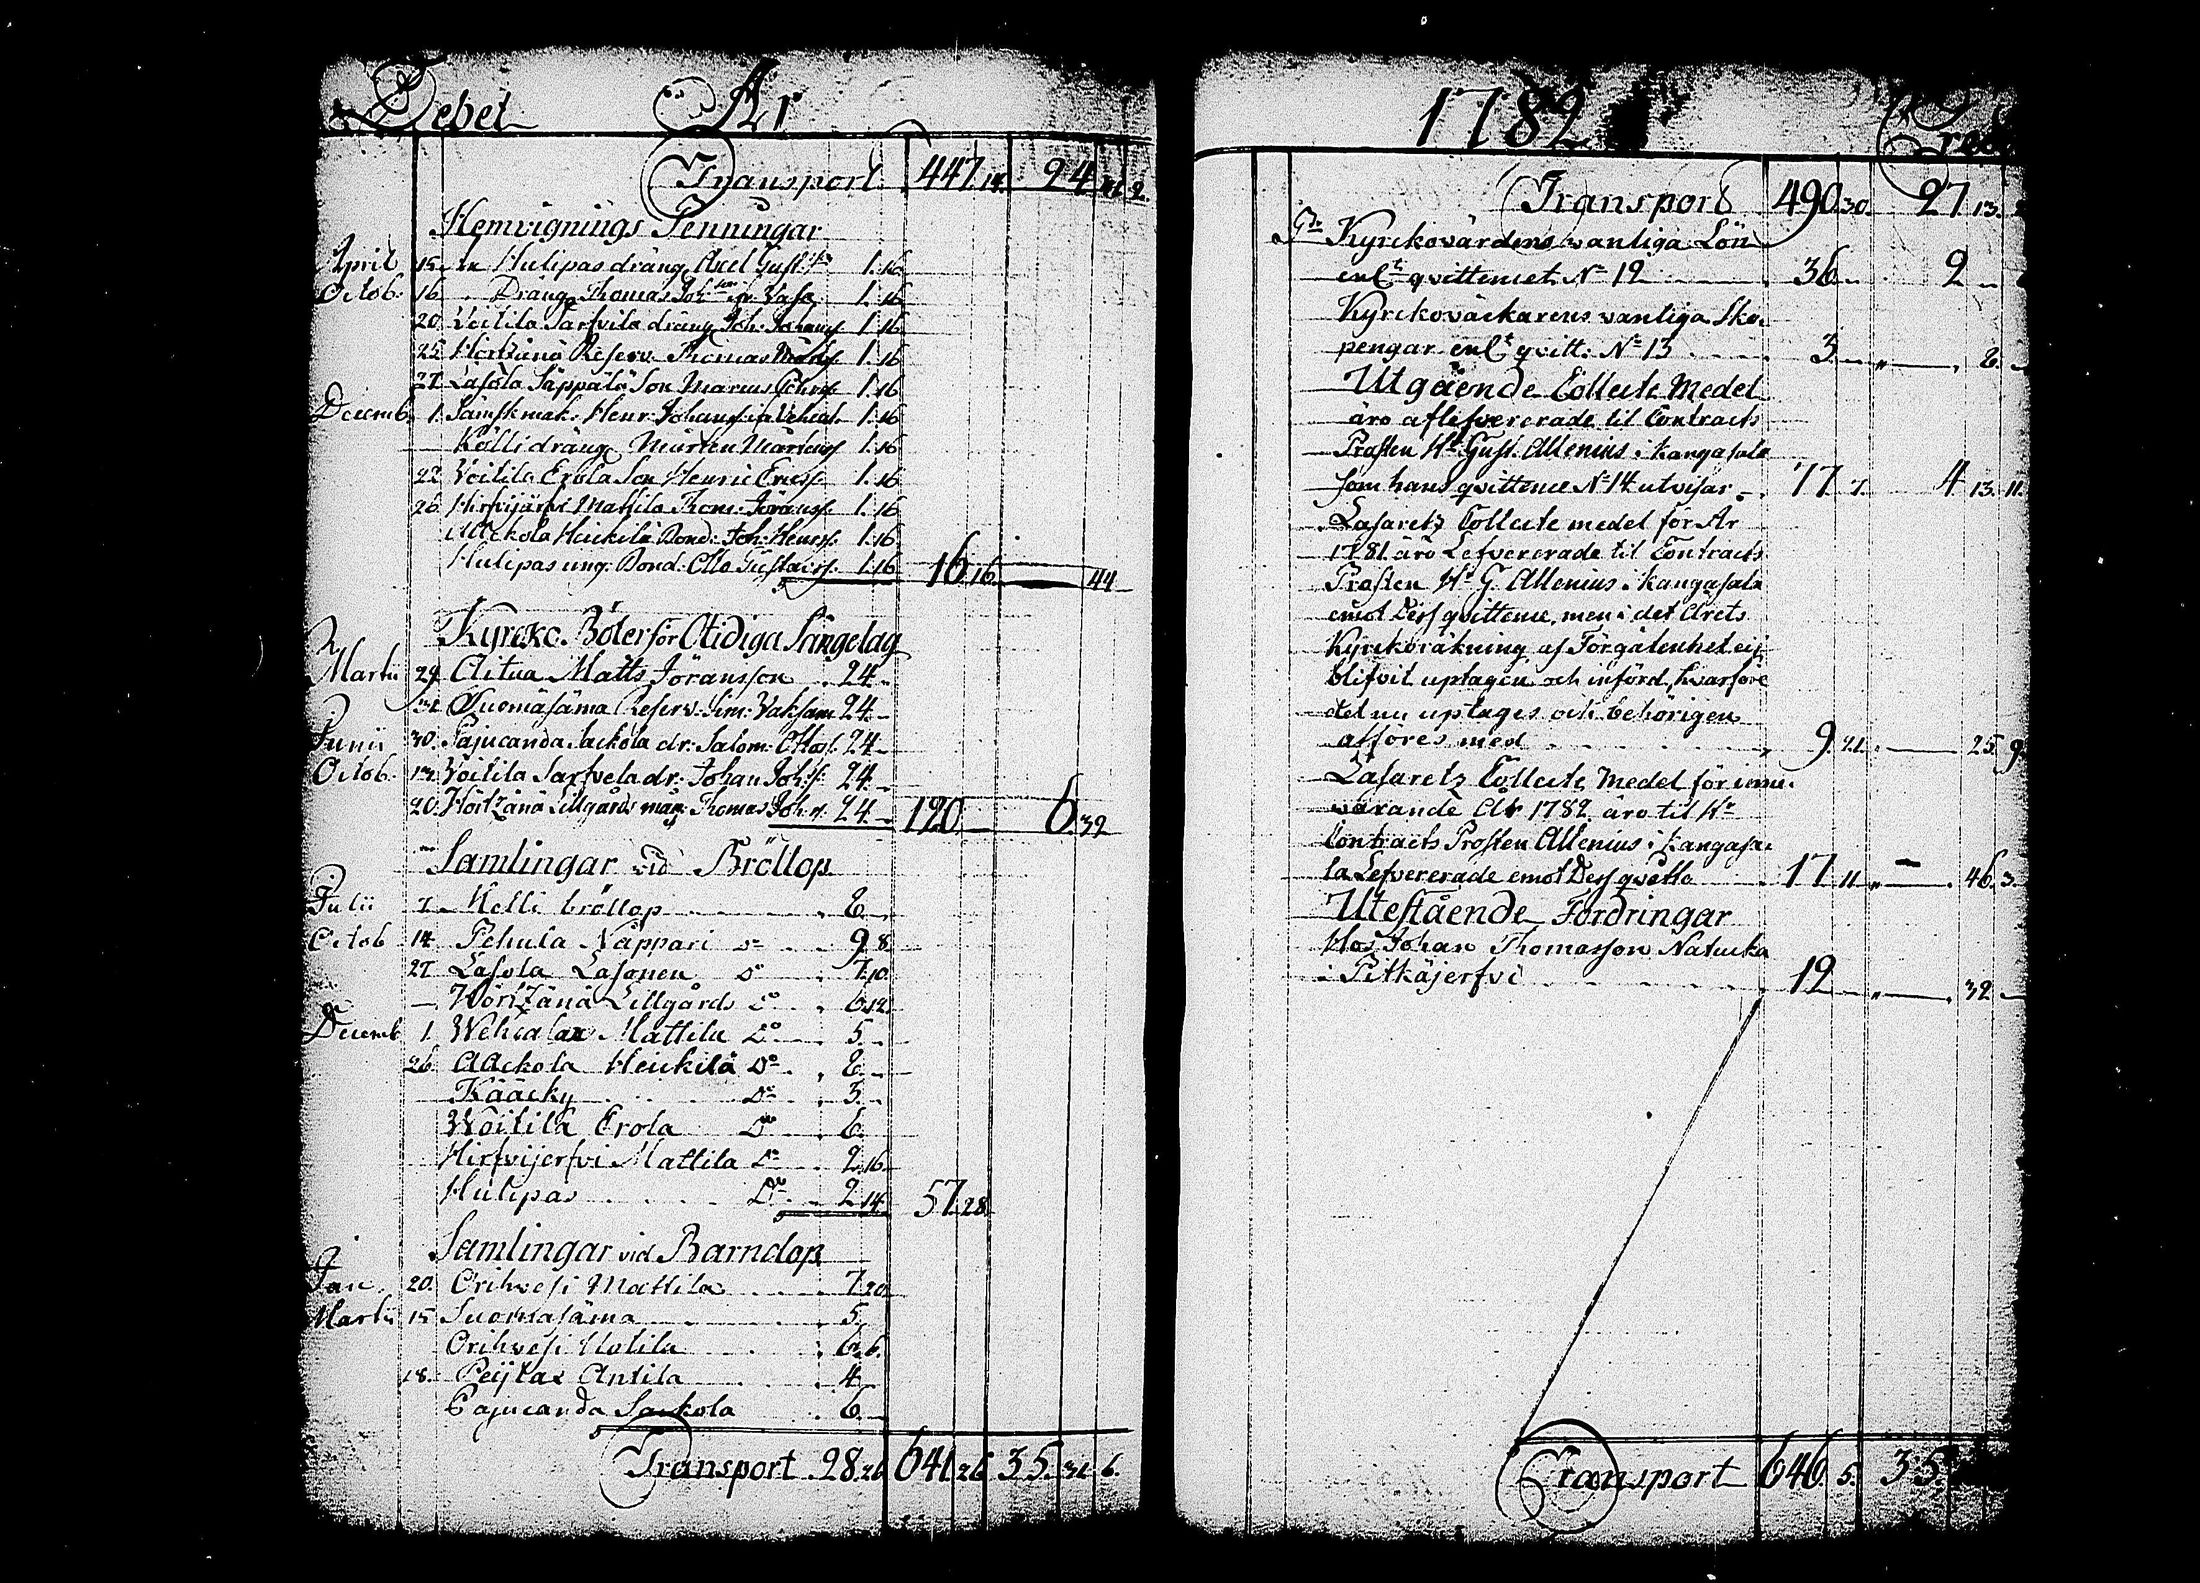 Debet År
Transport 447. 14. 24. 2.
Hemvignings Penningar
April 15. Hulipas dräng Axel Gust: 1. 16
Octob: 16 Dräng Thomas Joh: 1. 16
20 Voitila Sarfvila dräng Joh: Johans: 1. 16
25 Hörtzänä Reserv. Thomas 1. 16
27. Lasola Säppälä Son Marcus 1. 16
Decemb. 1. Sämskmak: Henr: Johans: ia Vehcal. 1. 16
Kölli dräng Mårten Mårtens: 1. 16
22 Voitila Erola Son Henric Ericss: 1. 16
26 Hirfvijärfvi Mattila Thom: Jöranss: 1. 16
AAckola Heickilä Bond: Joh: Henrss: 1. 16.
Hulipas ung: Bond: Otto Gustafss: 1. 16 16 16. 44
Kyrcko Böter för Otidiga Sängelag
Martii 24 Aitua Matts Jöransson 24.
Suomäsämä Reserv: Sim: Vaksam 24.
Junii 30. Pajucanda Sackola dr: Salom: Ottos: 24
Octob. Voitila Sarfvela dr: Johan Joh: 24.
20. Hörtzänä Lillgårds måg Thomas Joh: 24. 120 6. 32
Samlingar vid Bröllop
Julii 7. Kelli bröllop 8.
Octob 14 Pehula Näppari Do 9. 8
27 Lasola Lasonen Do 7. 10
Hörtzänä Lillgårds Do 6. 12.
Decemb 1. Wehcalax Mattila Do 5.
26. AAckola Heickilä Do 8.
Kääcky Do 3.
Woitila Erola Do 6.
Hirfvijerfvi Mattila Do 2. 16.
Hulipas Do 2. 14. 57. 28.
Samlingar vid Barndop
Jan. 20. Orihvesi Mattila 7. 20
Martii 15 Suomasäma 5.
Orihvesi Uotila 6. 6.
18. Peijtax Antila 4
Pajucanda Sackola 6.
Transport 28. 26 641. 26 35. 6.
1782
Transport 490. 30. 27. 13.
Kyrckovärdens vanliga Lön
enl:t qvittencet No 12 36 2
Kyrckoväckarens vanliga Sko-
pengar enl:t qvitt: No 13 3 8
Utgående Collecte Medel
äro aflefvererade til Contracts
Prosten Hr Gust. Allenius i kangasala
som hans qvittence No 14 utvisar 77 7. 4 13. 11.
Lasaretz Collecte medel för År
1781 äro Lefvererade til Contracts
Prosten Hr G. Allenius i kangasala
emot Dess qvittence, men i det Årets
Kyrckoräkning af Förgätenhet eij
blifvit uptagen och införd, hvarföre
det nu uptages och behörigen
afföres med 9 21. 25 9
Lasaretz Collecte Medel för innu-
varande År 1782 äro til Hr
Contracts Prosten Allenius i kangasa-
la Lefvererade emot Dess qvitto 17 11 46. 3
Utestående Fordringar
Hos Johan Thomasson Natucka
i Pitkäjerfvi 12 32
Transport 646. 5. 35.